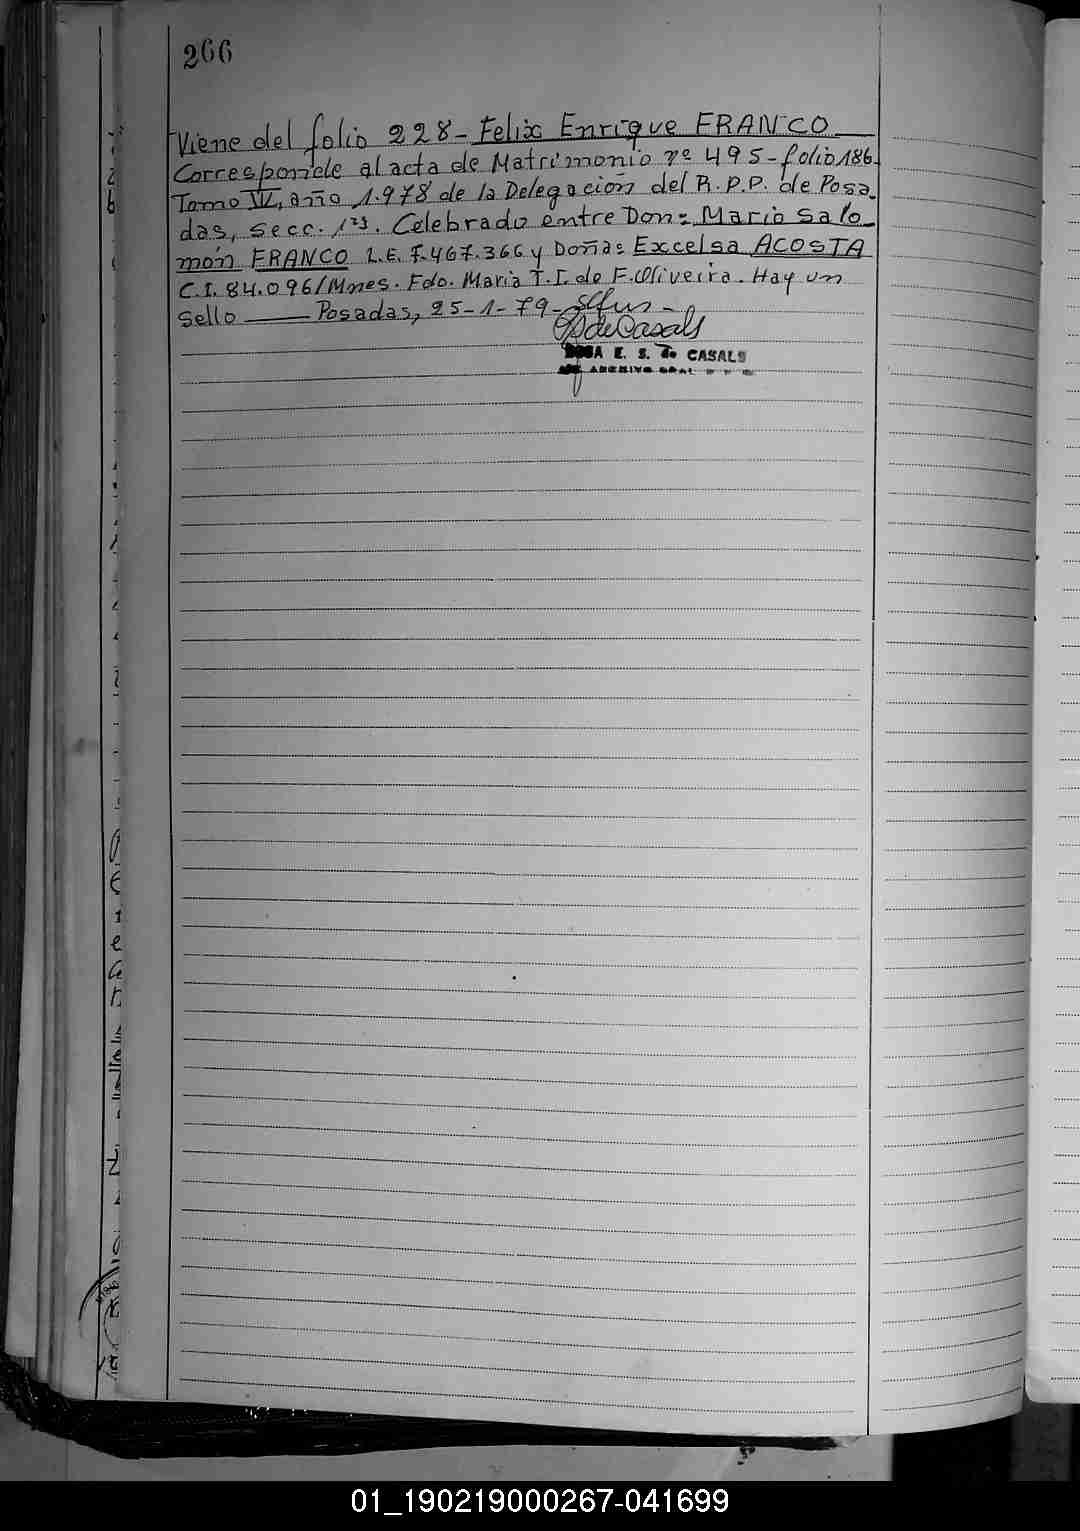 266
Viene del folio 228- Felix Enrique FRANCO
Corresponde al acta de Matrimonio nº 495- folio 186
Tomo IV, año 1.978 de la Delegación del R.P.P. de Posa_
das, Secc. 1ra. Celebrado entre Don= Mario Salo_
món FRANCO L.E. 7.467.366 y Doña= Excelsa ACOSTA
C.I. 84.096/Mnes. Fdo. Maria T.I. de F. Oliveira. Hay un
Sello —— Posadas, 25-1-79-
de Casals
ROSA E. S. de CASALS
ARCHIVO GRAL
01_190219000267-041699